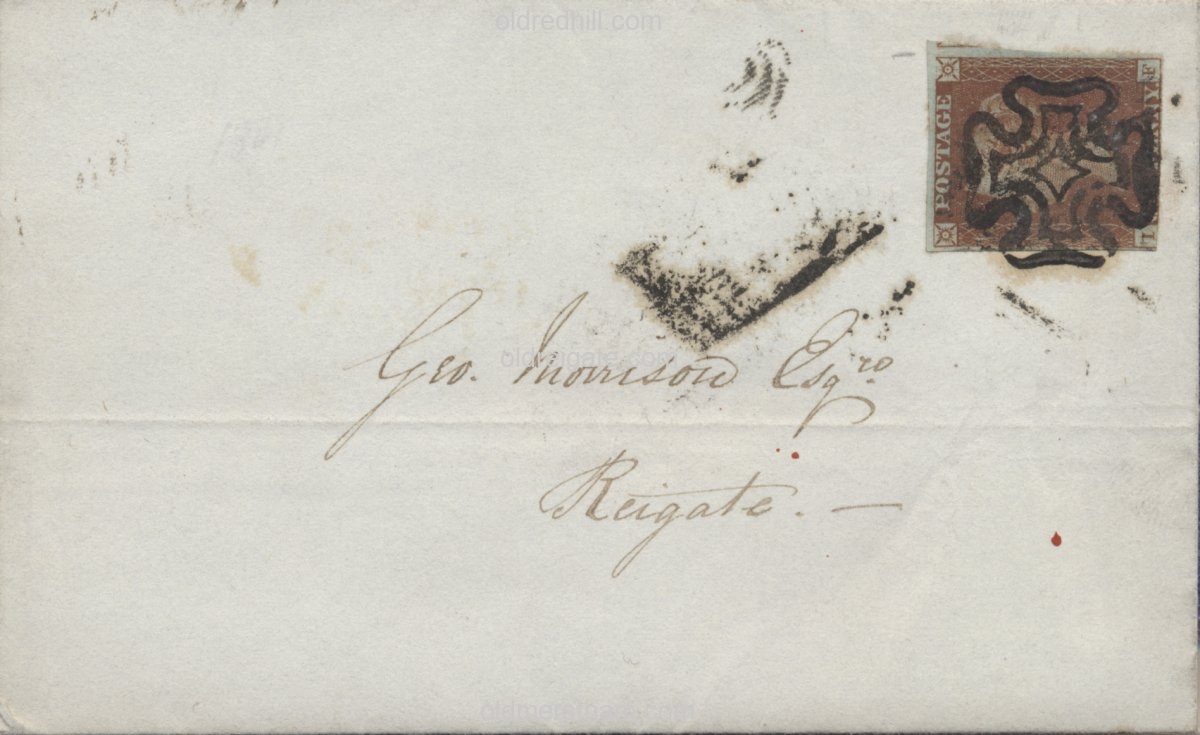 oldredhill.com
POSTAGE
F
Geo. Morrison Esqro
oldreigate.com
Reigate. —